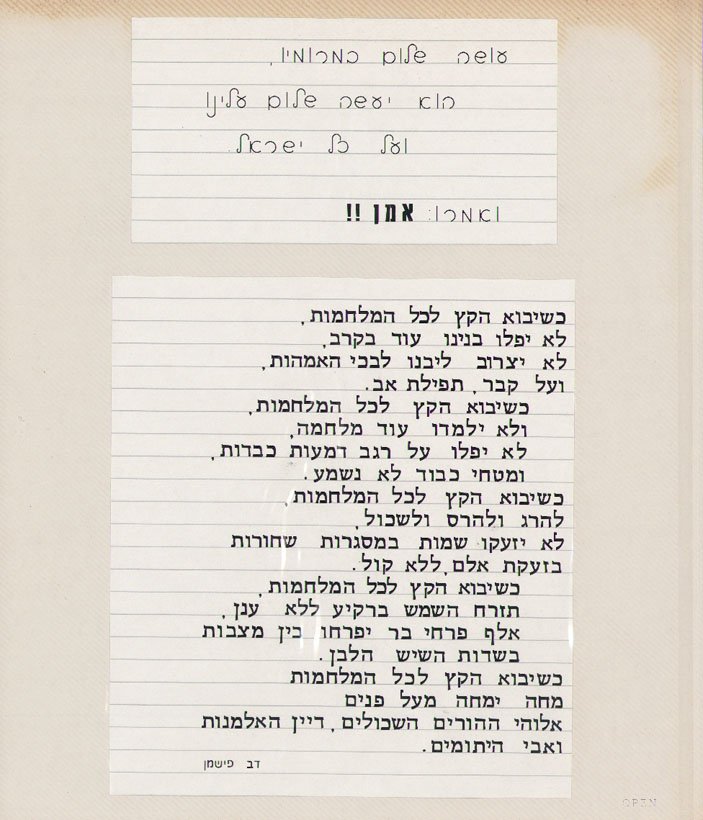 עושה שלום במרומיו,
הוא יעשה שלום עלינו
ועל כל ישראל
ואמרו: אמן !!
כשיבוא הקץ לכל המלחמות,
לא יפלו בנינו עוד בקרב,
לא יצרוב ליבנו לבכי האמהות,
ועל קבר, תפילת אב.
כשיבוא הקץ לכל המלחמות,
ולא ילמדו עוד מלחמה,
לא יפלו על רגב דמעות כבדות,
ומטחי כבוד לא נשמע.
כשיבוא הקץ לכל המלחמות,
להרג ולהרס ולשכול,
לא יזעקו שמות במסגרות שחורות
בזעקת אלם, ללא קול.
כשיבוא הקץ לכל המלחמות,
תזרח השמש ברקיע ללא ענן,
אלף פרחי בר יפרחו בין מצבות
בשדות השיש הלבן.
כשיבוא הקץ לכל המלחמות
מחה ימחה מעל פנים
אלוהי ההורים השכולים, דיין האלמנות
ואבי היתומים.
דב פישמן
OPEN